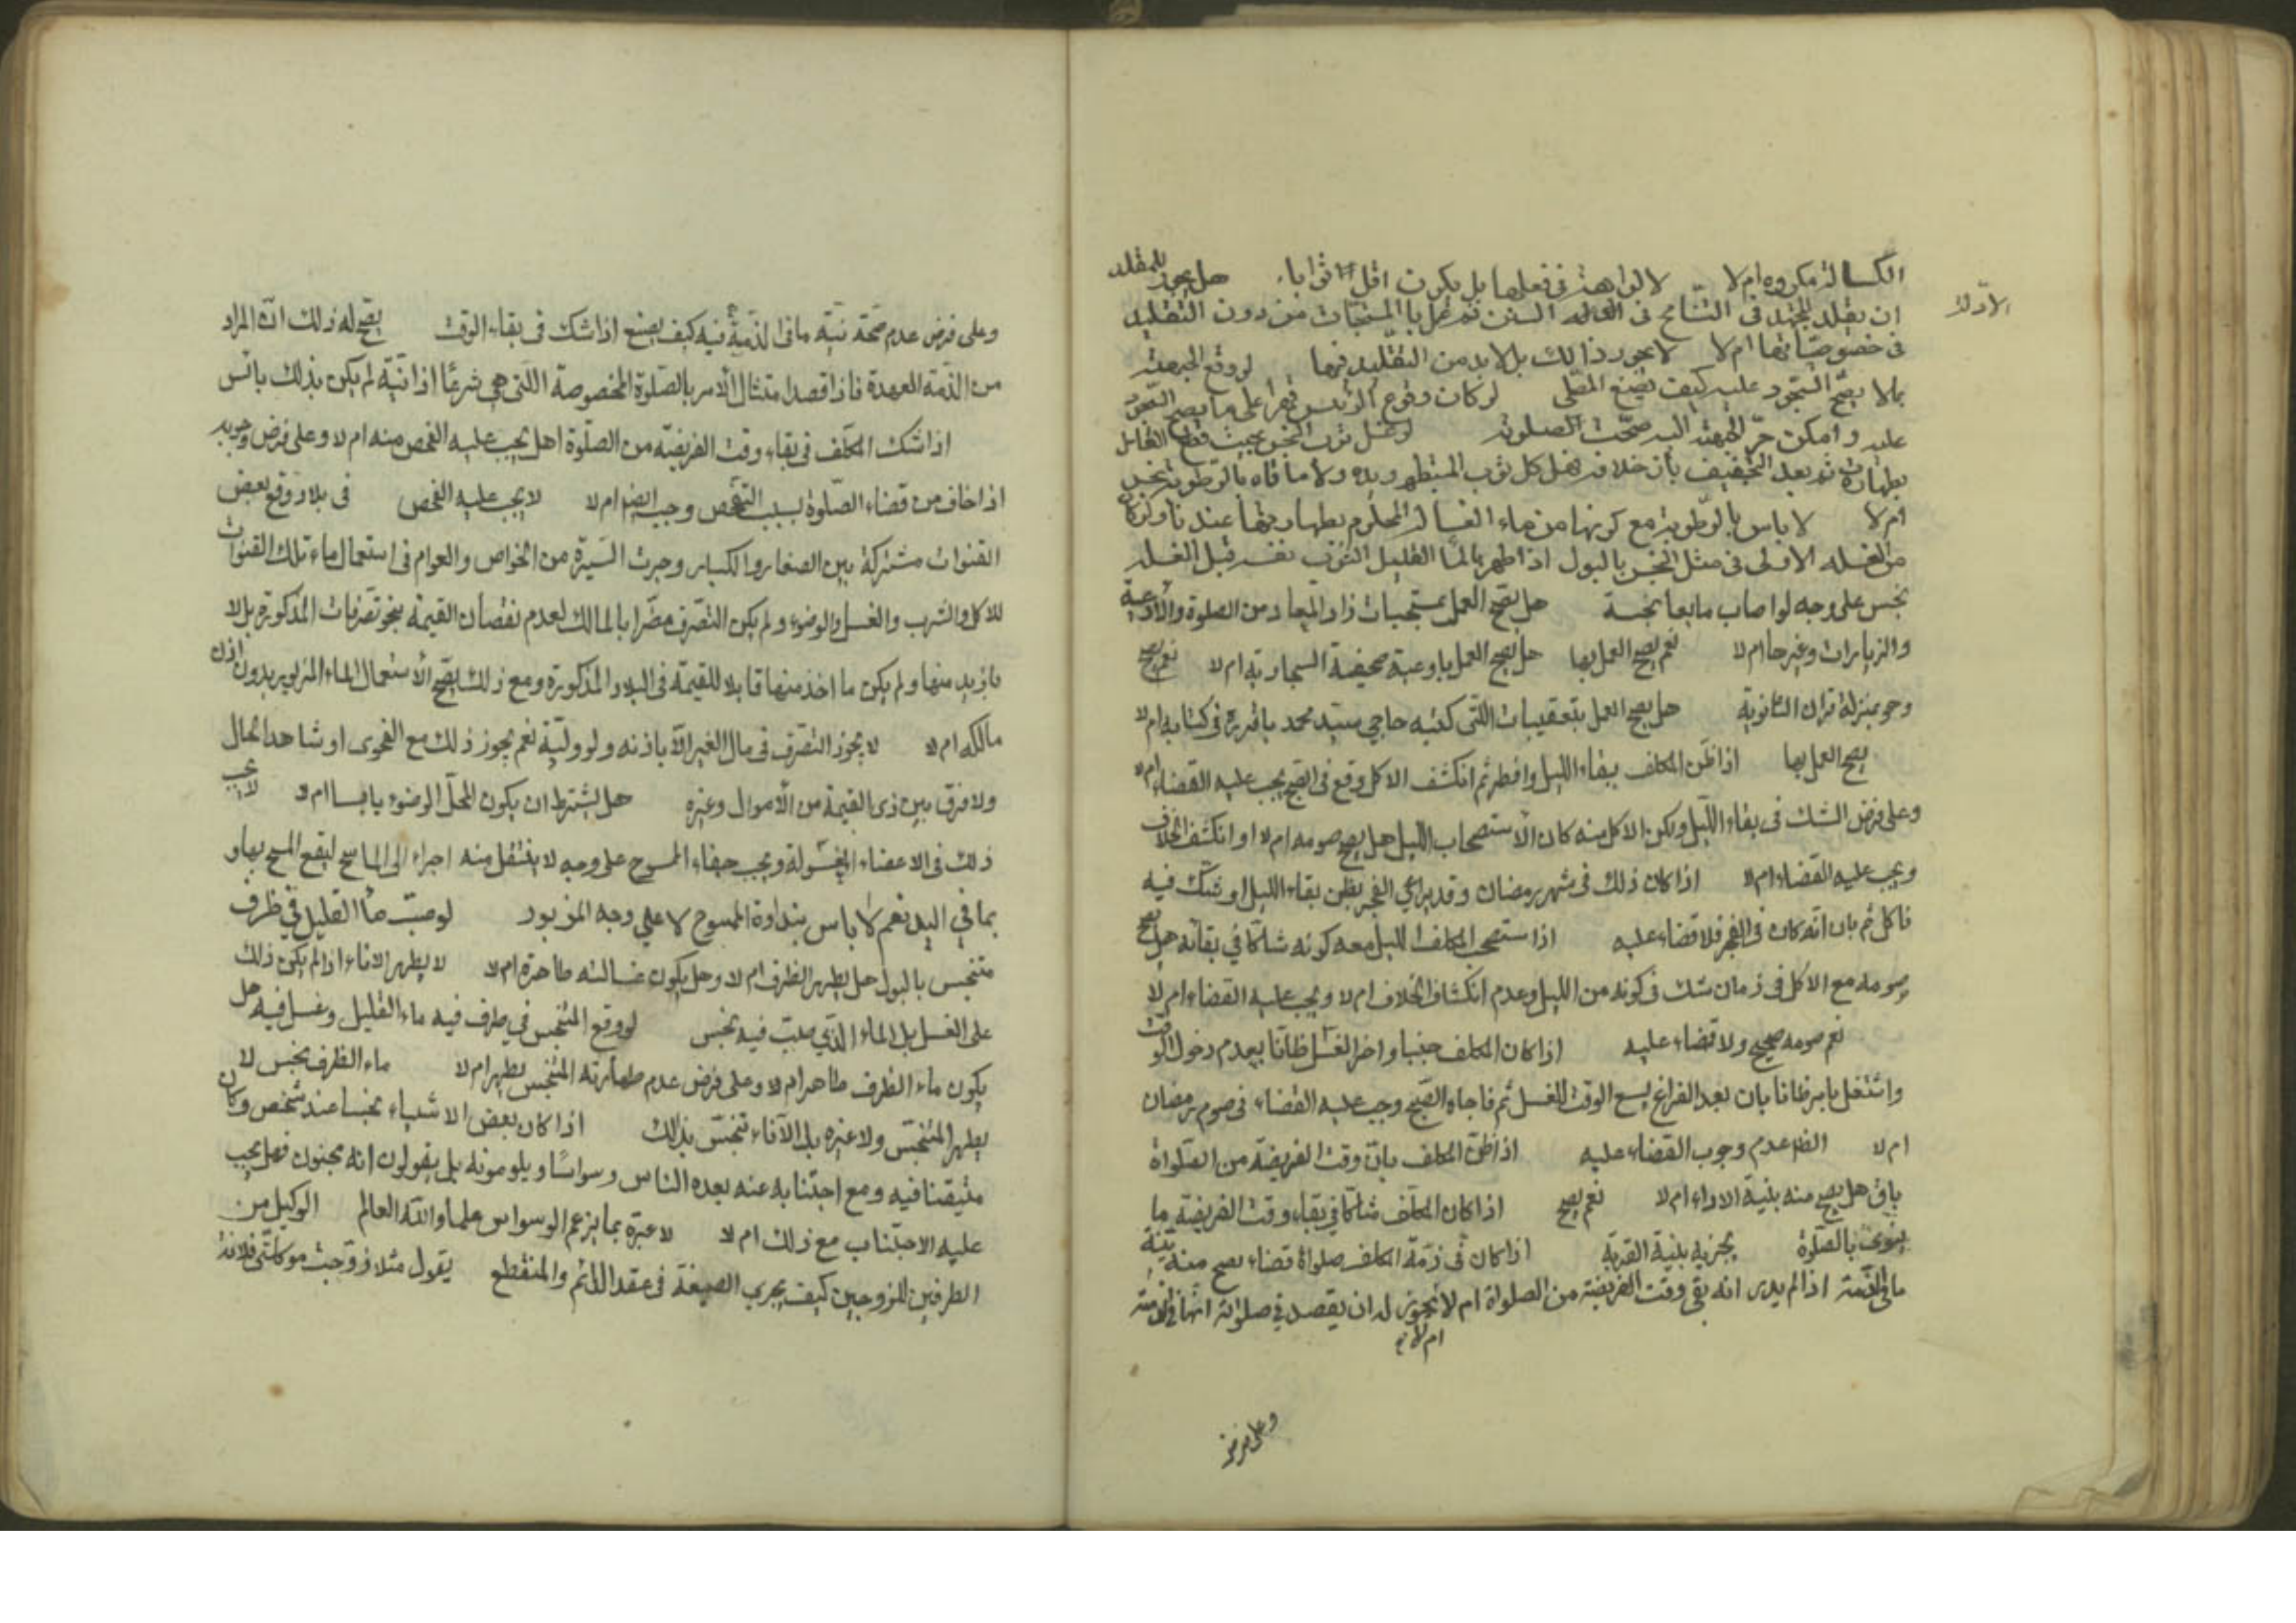 الكسالة مكروه ام لا لا كراهة في فعلها بل يكون اقل ثوابا هل يجوز للمقلد
الادلة
ان يقلد المجتهد في التسامح في ادلة السنن ثم يعمل بالمستحبات من دون التقليد
في خصوصياتها ام لا لا يجوز ذالك بل لابد من التقليد فيها لو وقع الجبهة
بما لا يصح السجود عليه كيف يصنع المصلى لو كان وقوع الرئيس قهرا على ما يصح السجود
عليه وامكن جر الجبهة اليه صحت الصلوة لو غسل ثوب النجس بحيث قطع الغاسل
بطهارته ثم بعد التجفيف بان خلافه فهل كل ثوب المتطهر ويده وما لاقاه بالرطوبة نجس
ام لا لا باس بالرطوبة مع كونها من ماء الغسالة المحكوم بطهارتها عندنا ولو كان
من الغسلة الاولى في مثل النجس بالبول اذا طهر بالماء القليل الثوب نفسه قبل الغسلة
نجس على وجه لو اصاب مايعا نجسه هل يصح العمل بمستحبات زاد المعاد من الصلوة والادعية
والزيارات وغيرها ام لا نعم يصح العمل بها هل يصح العمل بادعية صحيفة السجادية ام لا نعم يصح
وهو بمنزلة قران الثانوية هل يصح العمل بتعقيبات اللتى كتبه حاجي سيد محمد باقر ره في كتابه ام لا
يصح العمل بها اذا ظن المكلف ببقاء الليل وافطر ثم انكشف الاكل وقع في الصبح يجب عليه القضاء ام لا
وعلى فرض الشك في بقاء الليل ولكن الاكل منه كان الاستصحاب الليل هل يصح صومه ام لا او انكشف الخلاف
ويجب عليه القضاء ام لا اذا كان ذلك في شهر رمضان وقد يراعي الفجر بظن بقاء الليل او شك فيه
فاكل ثم بان انه كان في الفجر فلا قضاء عليه اذا ستصحب المكلف الليل معه كونه شاكا في بقائه هل يصح
صومه مع الاكل في زمان شك في كونه من الليل وعدم انكشاف الخلاف ام لا ويجب عليه القضاء ام لا
نعم صومه صحيح ولا قضاء عليه اذا كان المكلف جنبا واخر الغسل ظانا بعدم دخول الوقت
واشتغل بامر ظانا بان بعد الفراغ يسع الوقت للغسل ثم فاجاه الصبح وجب عليه القضاء في صوم رمضان
ام لا الظ عدم وجوب القضاء عليه اذا ظن المكلف بان وقت الفريضة من الصلواة
باق هل يصح منه بنية الاداء ام لا نعم يصح اذا كان المكلف شاكا في بقاء وقت الفريضة ما
ينوى بالصلوة يجزيه بنية القربة اذا كان في ذمة المكلف صلواة قضاء يصح منه بنية
ما في الذمة اذا لم يدر انه بقى وقت الفريضة من الصلواة ام لا يجوز له ان يقصد في صلواته انها في الذمة
ام لا
وعلى فرض
وعلى فرض عدم صحة نية ما فى الذمة فيه كيف يصنع اذا شك فى بقاء الوقت يصح له ذلك ان المراد
من الذمة العهدة فاذا قصد امتثال الامر بالصلوة المخصوصة اللتى هى شرعا اذا تية لم يكن بذلك باس
اذا شك المكلف فى بقاء وقت الفريضة من الصلوة اهل يجب عليه الفحص منه ام لا وعلى فرض وجوبه
اذا خاف من قضاء الصلوة بسبب التفحص وجب ايضا ام لا لا يجب عليه الفحص فى بلاد وقع بعض
القنوات مشتركة بين الصغار والكبار وجرت السيرة من الخواص والعوام فى استعمال ماء تلك القنوات
للاكل والشرب والغسل والوضوء ولم يكن التصرف مضرا بالمالك لعدم نقصان القيمة بنحو تصرفات المذكورة بل لا
بازيد منها ولم يكن ما اخذ منها قابلا للقيمة فى البلاد المذكورة ومع ذلك يصح الاستعمال الماء المزبور بدون اذن
مالكه ام لا لا يجوز التصرف فى مال الغير الا باذنه ولو وليه نعم يجوز ذلك مع الفحوى او شاهد الحال
ولا فرق بين ذى القيمة من الاموال وغيره هل يشترط ان يكون المحل الوضوء يابسا ام لا لا يجب
ذلك فى الاعضاء المغسولة ويجب جفاء الممسوح على وجه لا ينتقل منه اجزاء الى الماسح ليقع المسح بها و
بما في اليد نعم لا باس بنداوة الممسوح لا علي وجه المزبور لو صبت ماء القليل في ظرف
متنجس بالبول هل يطهر الظرف ام لا وهل يكون غسالته طاهرة ام لا لا يطهر الاناء اذا لم يكن ذلك
على الغسل بل الماء الذي صبت فيه نجس لو وقع المتنجس في ظرف فيه ماء القليل وغسل فيه هل
يكون ماء الظرف طاهرا ام لا وعلى فرض عدم طهارته المتنجس يطهر ام لا ماء الظرف نجس لا
يطهر المتنجس ولا غيره بل الآناء تنجس بذلك اذا كان بعض الاشياء نجسا عند شخص وكان
متيقنا فيه ومع اجتنابه عنه يعده الناس وسواسا ويلومونه بل يقولون انه مجنون فهل يجب
عليه الاجتناب مع ذلك ام لا لا عبرة بما يزعم الوسواس علما والله العالم الوكيل من
الطرفين للزوجين كيف يجري الصيغة فى عقد الدائم والمنقطع يقول مثلا زوجت موكلتى فلانة